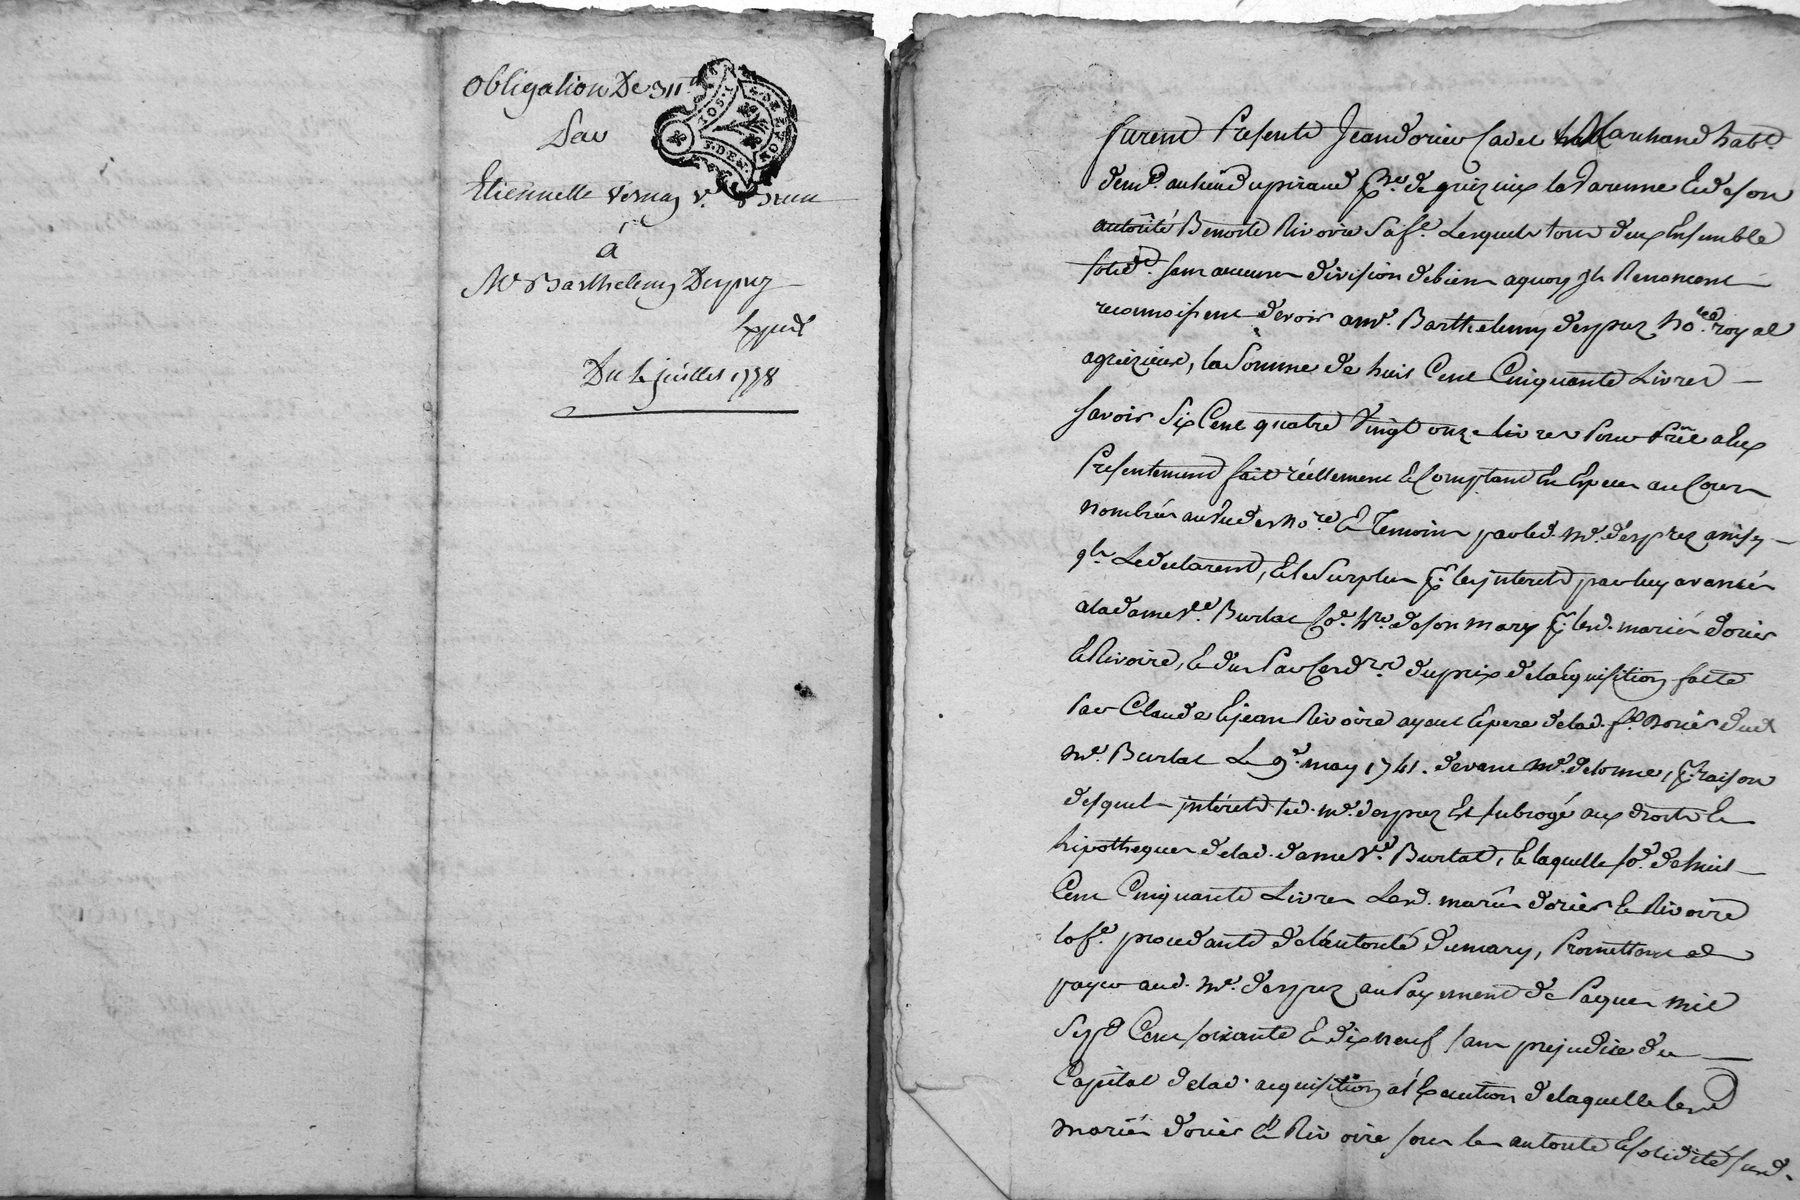 Obligation De 311ᵗ
Par
Etiennette Vernay vᵉ Brun
à
Mᵉ Barthelemy Desprez
Expedᵉ
Du 4 juillet 1778
furent Presents Jean dorier Cadet Marchand habᵗ
demᵗ au lieu du piraud psse de grezieux la Varenne et de son
autorité Benoite Rivoire Sa fᵉ Lesquels tous deux Ensemble
solidᵗ sans aucune division de biens a quoy Ils Renoncent
reconnoissent devoir a mᵉ Barthelemy desprez noʳᵉ royal
a grezieux, la Somme de huit Cent Cinquante Livres
savoir Six Cent quatre Vingt onze livres Pour Prêt a Eux
Presentement fait réellement et Comptant En Especes au Cours
nombrées au vu des noʳᵉ Et Temoins par led. mᵉ desprez ainsy
qls Le declarent, Et le Surplus pʳ les interets par luy avancés
a la dame vᵛᵉ Burlat de son mary pʳ lesd. mariés dorier
et Rivoire, et dus Par du prix de lacquisition faitte
Par Claude et jean Rivoire ayeul et pere de lad. fᵉ dorier dud
mᵉ Burlat Le 9ᵉ may 1741. devant mᵉ delorme, pʳ raison
desquels interets led. mᵉ desprez Est subrogé aux droits et
hipotheques de lad. dame vᵉ Burlat, et laquelle sᵉ de huit
Cent Cinquante Livres Lesd. mariés dorier et Rivoire
la fᵉ procedante de l'autorité du mary, Promettent de
payer aud. mᵉ desprez au Payement de Paques mil
Sept Cent soixante et dix neuf sans prejudice du
Capital de lad. acquisition a l'Execution de laquelle lesd
mariés dorier et Rivoire sous les autorité et solidité susd.